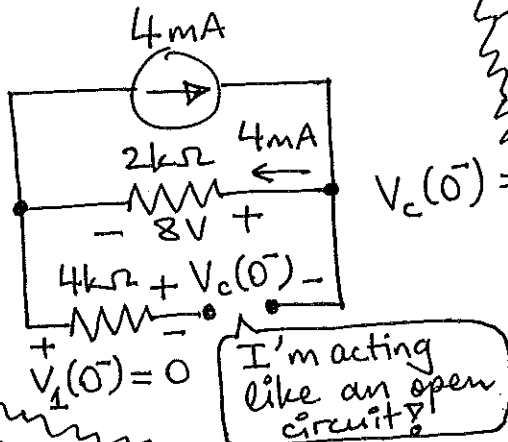 4mA
4mA
2kΩ
- 8V +
V_c(0⁻) =
4kΩ + V_c(0⁻) -
+ -
V_1(0⁻) = 0
I'm acting
like an open
circuit!